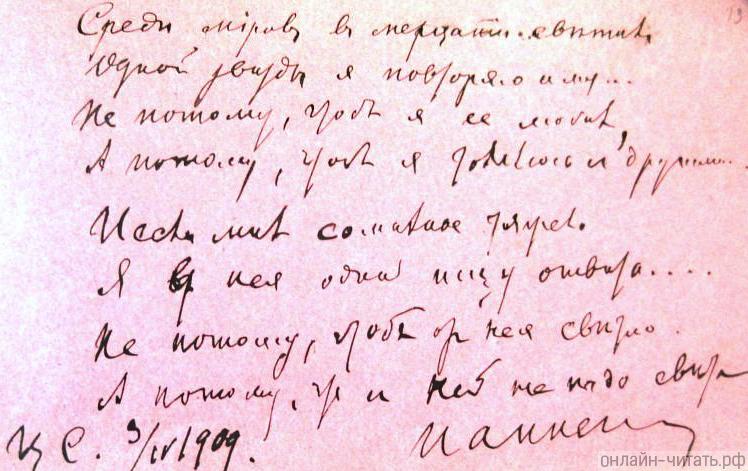 13
Среди мiровъ, въ мерцанiи свѣтилъ
Одной звѣзды я повторяю имя...
Не потому, чтобъ я ее любилъ,
А потому, что я томлюсь съ другими...
И если мнѣ сомнѣнье тяжело
Я у нея одной ищу отвѣта....
Не потому, чтобъ отъ нея свѣтло.
А потому, что съ ней не надо свѣта
Ц С. 3/IV 1909.
онлайн-читать.рф